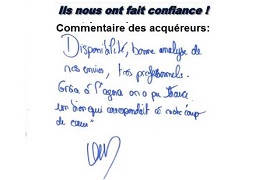 Ils nous ont fait confiance !
Commentaire des acquéreurs:
Disponibilité, bonne analyse de
nos envies, très professionnels.
Grâce à l'agence on a pu trouver
un bien qui correspondait à notre coup
de cœur"